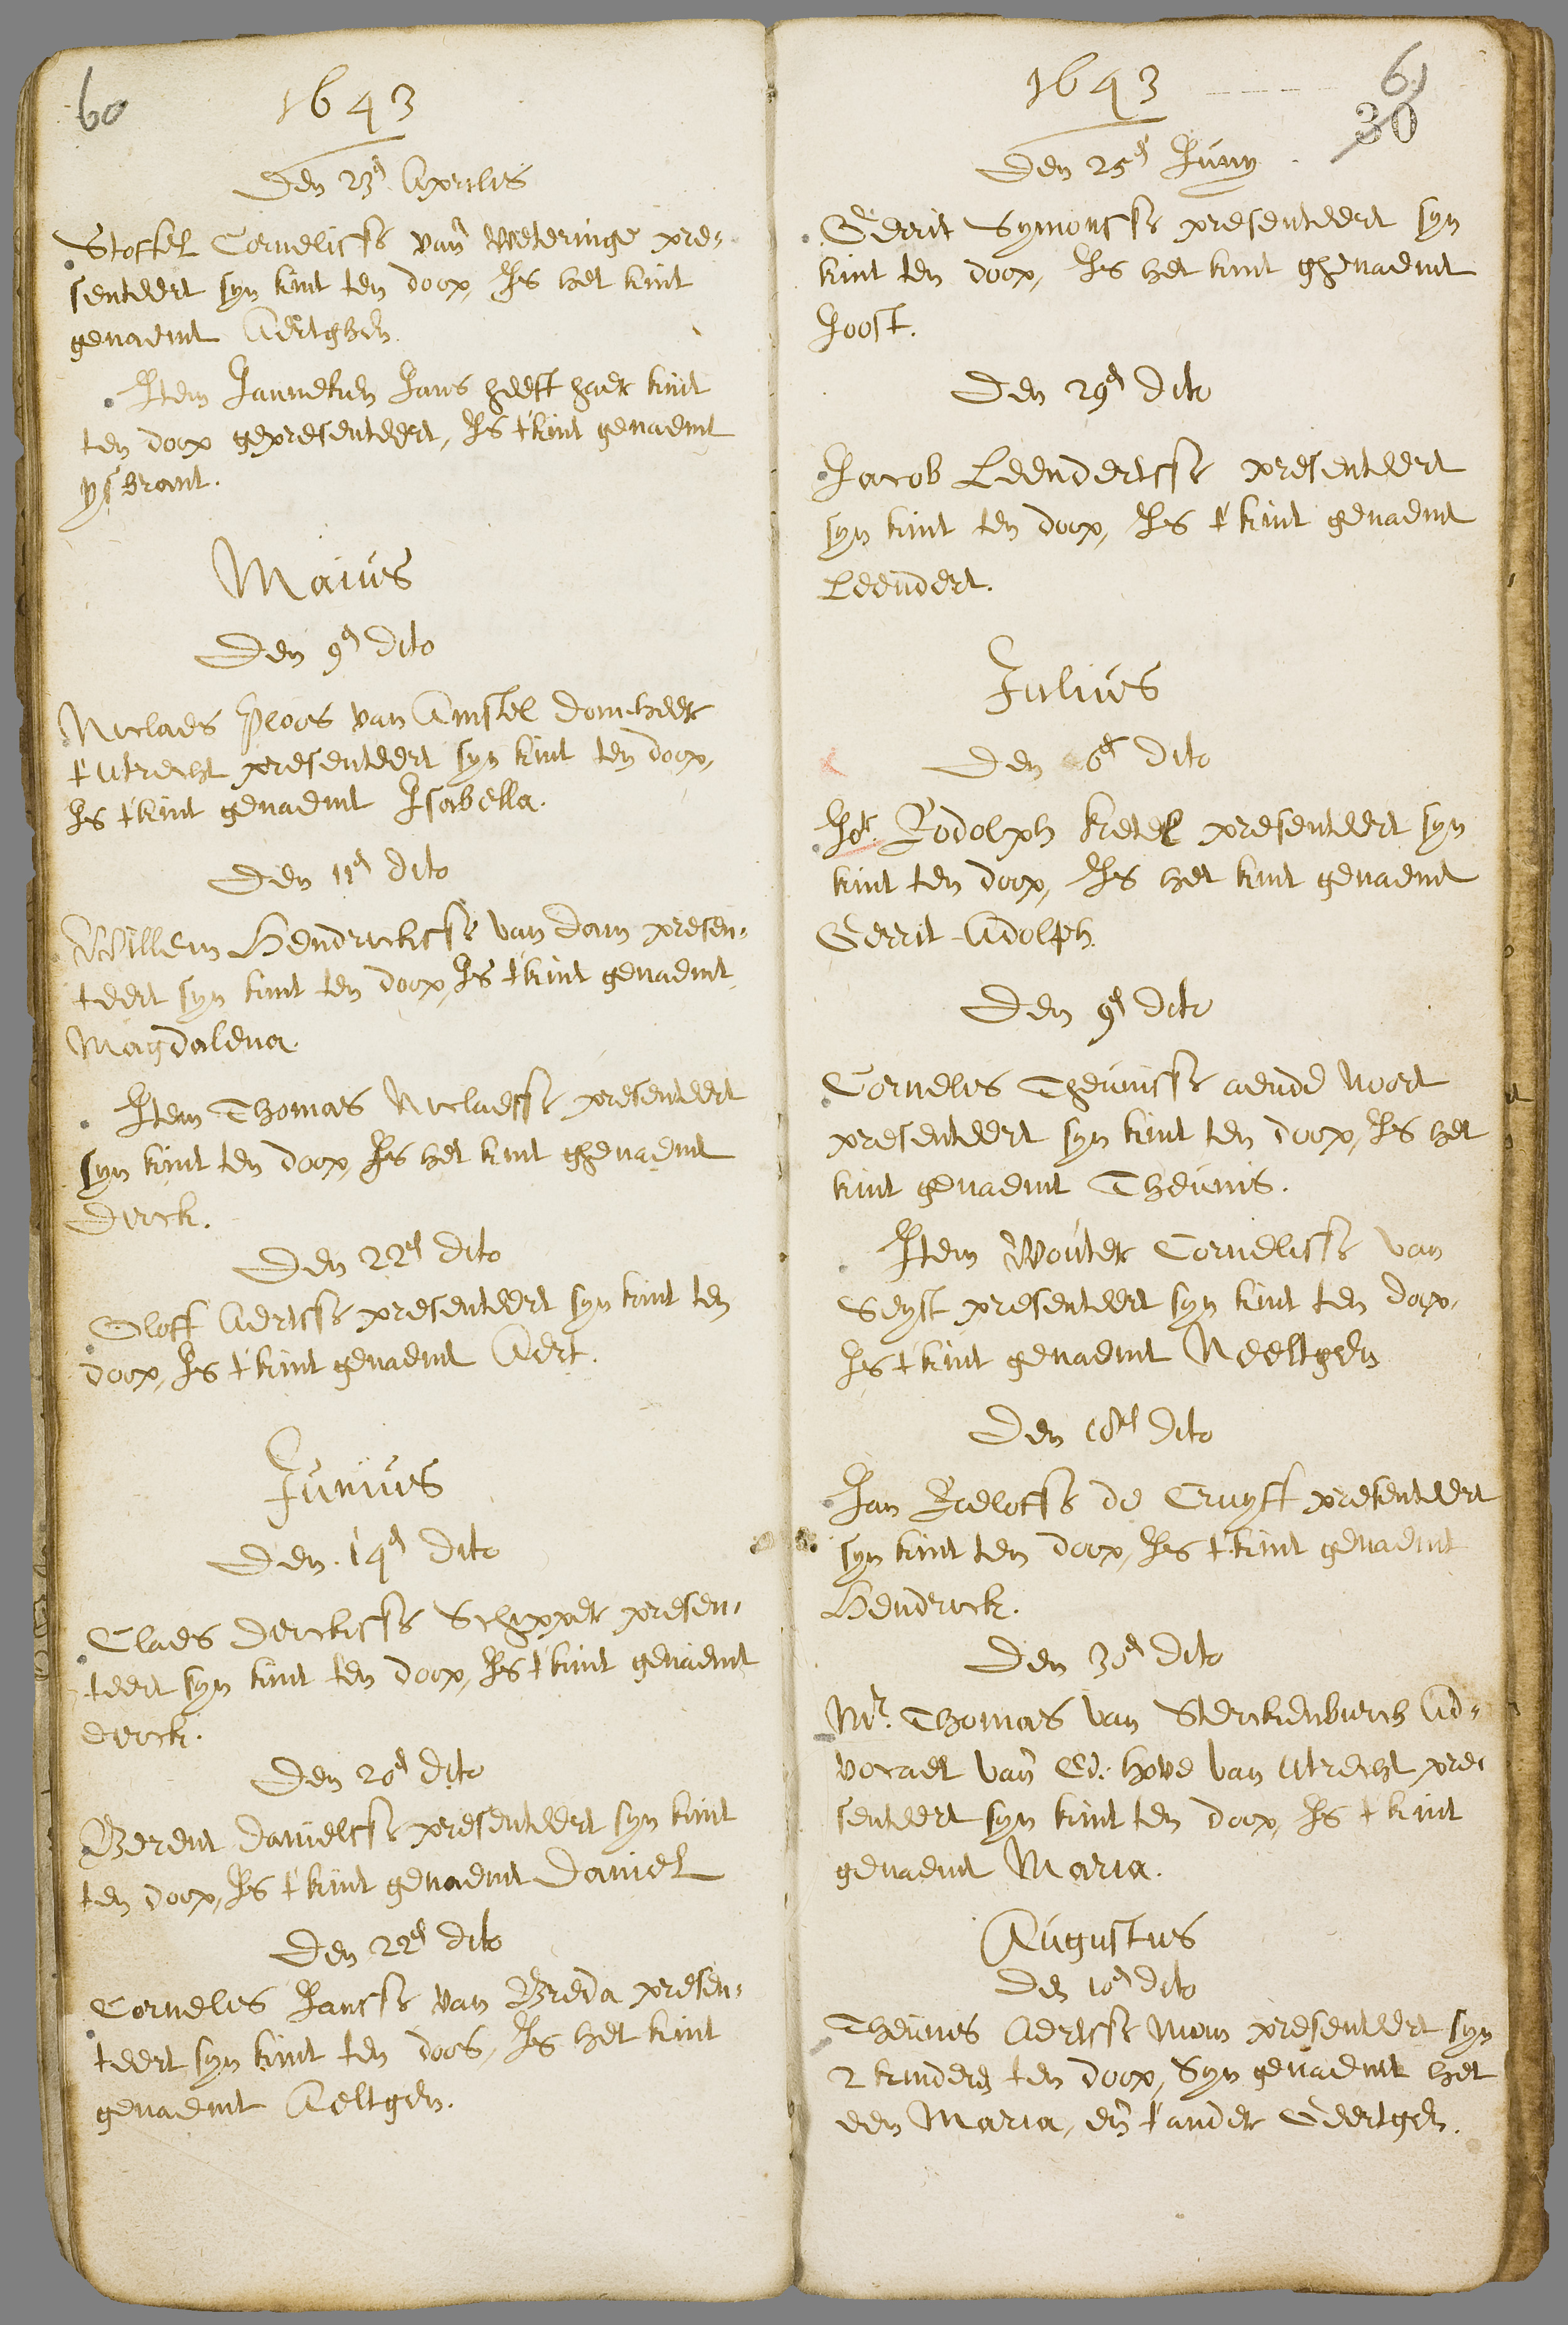 60
1643
Den 23en Aprilis
Stoffel Cornelisse vañ Weteringe pre-
senteert syn kint ten doop, Is het kint
genaemt Aertghen.
Item Janneken Jans heeft haer kint
ten doop gepresenteert, Is t'kint genaemt
ysbrant.
Maius
Den 9en dito
Niclaes Ploos van Amstel domheer
t'Utrecht presenteert syn kint ten doop,
Is t'kint genaemt Isabella.
Den 11en dito
Willem Hendricksse van dam presen-
teert syn kint ten doop, Is t'kint genaemt
Magdalena.
Item Thomas Niclaesse presenteert
syn kint ten doop, Is het kint ghenaemt
Dirck.
Den 22en dito
Oloff Aertsse presenteert syn kint ten
doop, Is t'kint genaemt Aert.
Junius
Den 14en dito
Claes Dirckisse Schipper presen-
teert syn kint ten doop, Is t'kint genaemt
dirck.
Den 20en dito
Berent Danielsse presenteert syn kint
ten doop, Is t'kint genaemt Daniel
Den 22en dito
Cornelis Jansse van Breda presen-
teert syn kint ten doos, Is het kint
genaemt Aeltgen.
1643
61
30
Den 25en Juny
Gerrit Symonsse presenteert syn
kint ten doop, Is het kint ghenaemt
Joost.
Den 29en dito
Jacob Leendertsse presenteert
syn kint ten doop, Is t'kint genaemt
Leendert.
Julius
Den 6en dito
Jor. Rodolph Ketel presenteert syn
kint ten doop, Is het kint genaemt
Gerrit-Adolph.
Den 9en dito
Cornelis Theunisse aende Noort
presenteert syn kint ten doop, Is het
kint genaemt Theunis.
Item Wouter Cornelisse van
Seyst presenteert syn kint ten dop,
Is t'kint genaemt Neeltgen
Den 18en dito
Jan Roeloffs de Cruyff presenteert
syn kint ten doop, Is t'kint genaemt
Hendrick.
Den 30en dito
Mr. Thomas van Sterckenburch Ad-
vocaet vañ Ed: hove van Utrecht pre-
senteert syn kint ten doop, Is t'kint
genaemt Maria.
Augustus
Den 10en dito
Theunis Aertsse Mom presenteert syn
2 kinders ten doop, Syn genaemt het
een Maria, eñ t'ander Geertgen.